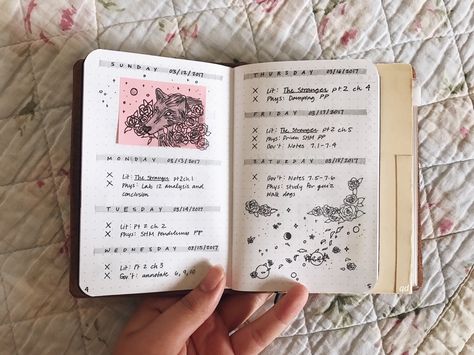 SUNDAY 03/12/2017
MONDAY 03/13/2017
X Lit: The Stranger pt 2 ch 1
X Phys: Lab 12 analysis and
conclusion
TUESDAY 03/14/2017
X Lit: Pt 2 ch 2
X Phys: SHM Pendulums PP
WEDNESDAY 03/15/2017
X Lit: Pt 2 ch 3
X Gov't: annotate 6, 9, 10
4
THURSDAY 03/16/2017
X Lit: The Stranger pt 2 ch 4
X Phys: Damping PP
FRIDAY 03/17/2017
X Lit: The Stranger pt 2 ch 5
X Phys: Driven SHM PP
X Gov't: Notes 7.1-7.4
SATURDAY 03/18/2017
X Gov't: Notes 7.5-7.6
X Phys: Study for quiz
Walk dogs
5